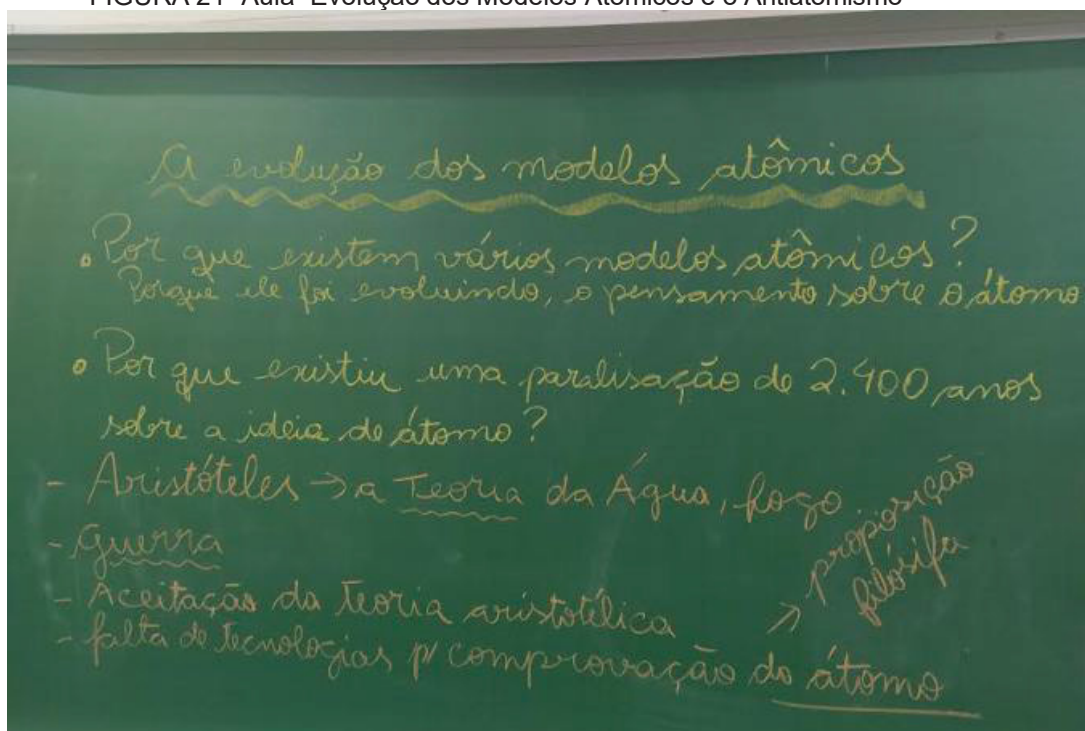 FIGURA 21- Aula "Evolução dos Modelos Atômicos e o Antiatomismo"
A evolução dos modelos atômicos
• Por que existem vários modelos atômicos?
Porque ele foi evoluindo, o pensamento sobre o átomo
• Por que existiu uma paralisação de 2.400 anos
sobre a ideia de átomo?
- Aristóteles → a Teoria da Água, fogo
- Guerra
- Aceitação da teoria aristotélica
- falta de tecnologias p/ comprovação do átomo
→ proposição
filósifa